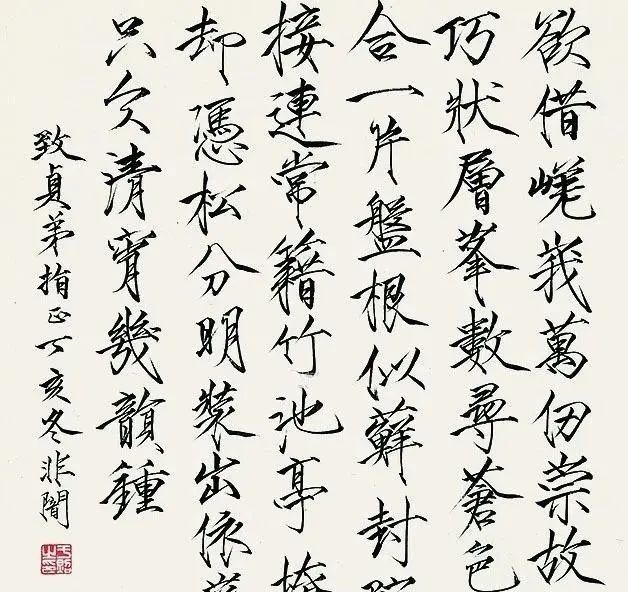 欲借嵯峨萬仞崇故
巧狀層峯數尋蒼色
合一片盤根似蘚封
接連常籍竹池亭
却憑松分明裝出依
只欠清宵幾韻鍾
致貞弟指正丁亥冬非闇